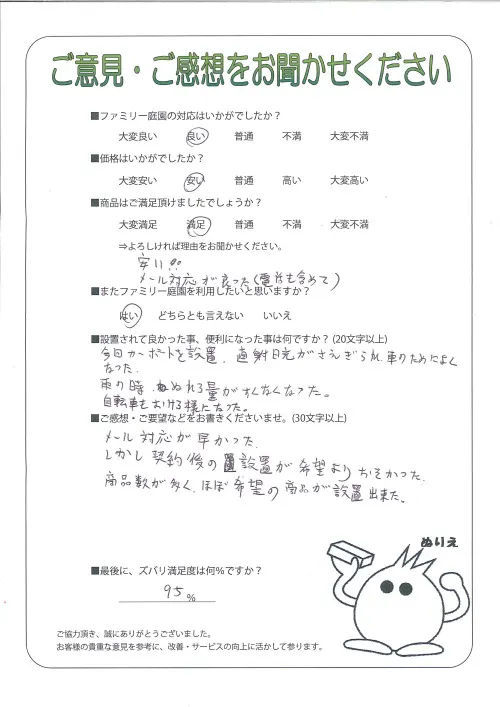 ご意見・ご感想をお聞かせください
■ファミリー庭園の対応はいかがでしたか？
大変良い 良い 普通 不満 大変不満
■価格はいかがでしたか？
大変安い 安い 普通 高い 大変高い
■商品はご満足頂けましたでしょうか？
大変満足 満足 普通 不満 大変不満
⇒よろしければ理由をお聞かせください。
安い!!
メール対応が良った(電話も含めて)
■またファミリー庭園を利用したいと思いますか？
はい どちらとも言えない いいえ
■設置されて良かった事、便利になった事は何ですか？(20文字以上)
今回カーポートを設置、直射日光がさえぎられ、車のためによく
なった。
雨の時、ぬれる量がすくなくなった。
自転車をおける様になった。
■ご感想・ご要望などをお書きくださいませ。(30文字以上)
メール対応が早かった。
しかし契約後の設置が希望よりおそかった。
商品数が多く、ほぼ希望の商品が設置出来た。
ぬりえ
■最後に、ズバリ満足度は何％ですか？
95%
ご協力頂き、誠にありがとうございました。
お客様の貴重な意見を参考に、改善・サービスの向上に活かして参ります。